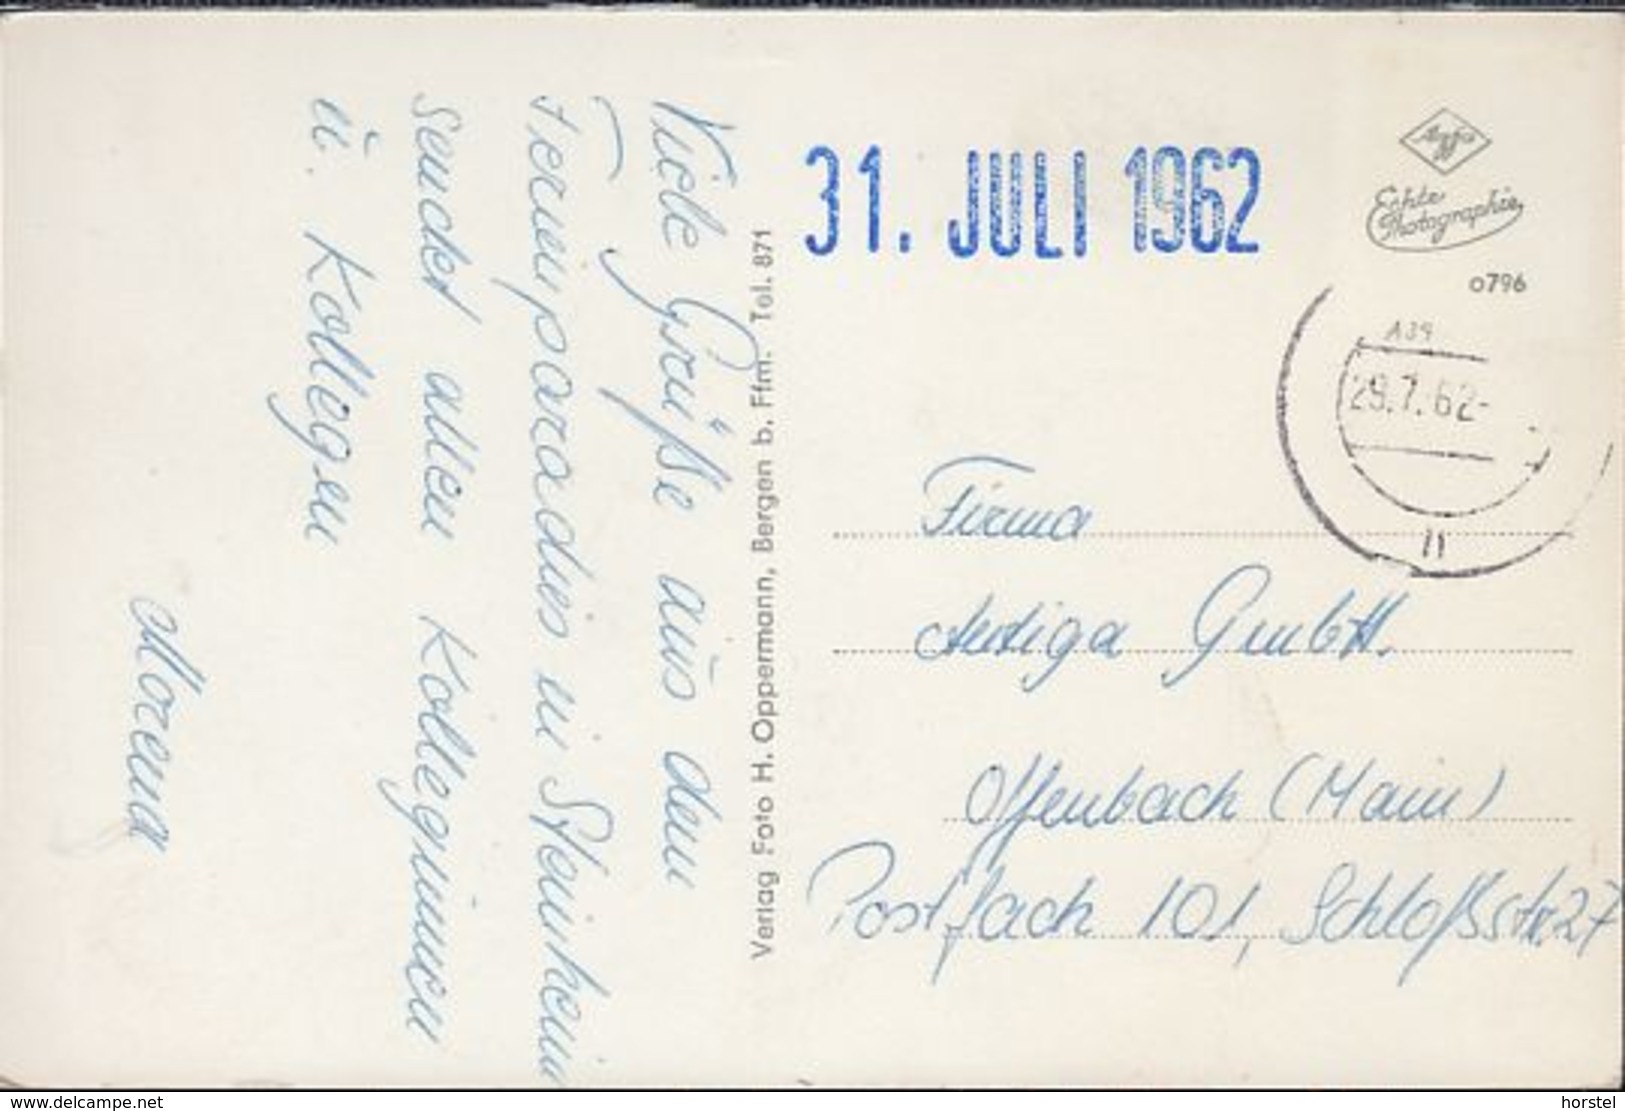 Viele Grüße aus dem
Ferienparadies in Steinheim
sendet allen Kolleginnen
u. Kollegen
Morena
Verlag Foto H. Oppermann, Bergen b. Ffm. Tel. 871
31. JULI 1962
Agfa
Echte
Photographie
o796
A39
29.7.62-
11
Firma
GmbH.
Offenbach (Main)
Postfach 101, Schloßstr. 27
www.delcampe.net
horstel